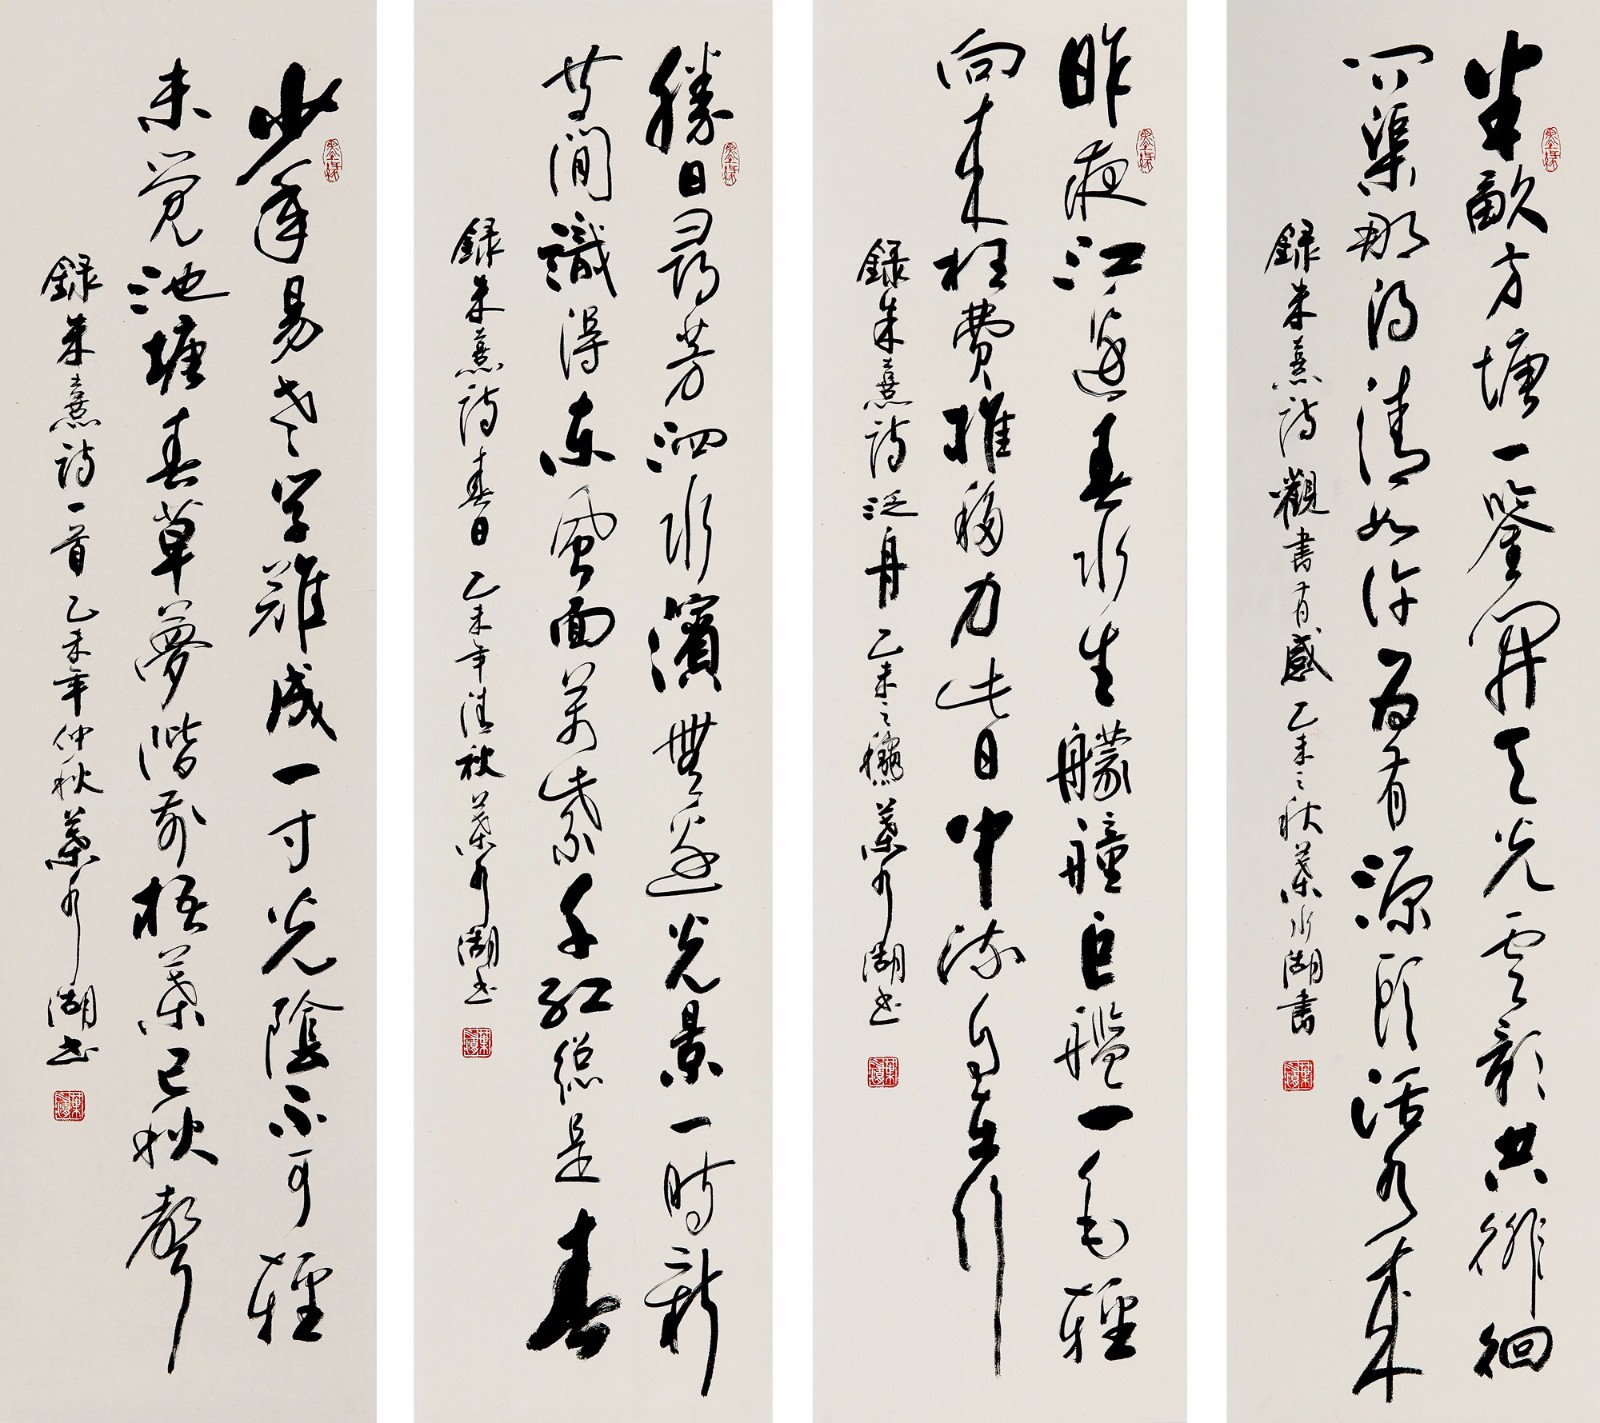 半畝方塘一鑒開天光雲影共徘徊
問渠那得清如許為有源頭活水來
録朱熹詩觀書有感 乙未之秋葉水湖書
昨夜江邊春水生艨艟巨艦一毛輕
向來枉費推移力此日中流自在行
録朱熹詩泛舟 乙未之穐葉水湖書
勝日尋芳泗水濱無邊光景一時新
等閒識得東風面萬紫千紅總是春
録朱熹詩春日 乙未年清秋葉水湖書
少年易老學難成一寸光陰不可輕
未覺池塘春草夢階前梧葉已秋聲
録朱熹詩一首 乙未年仲秋葉水湖書